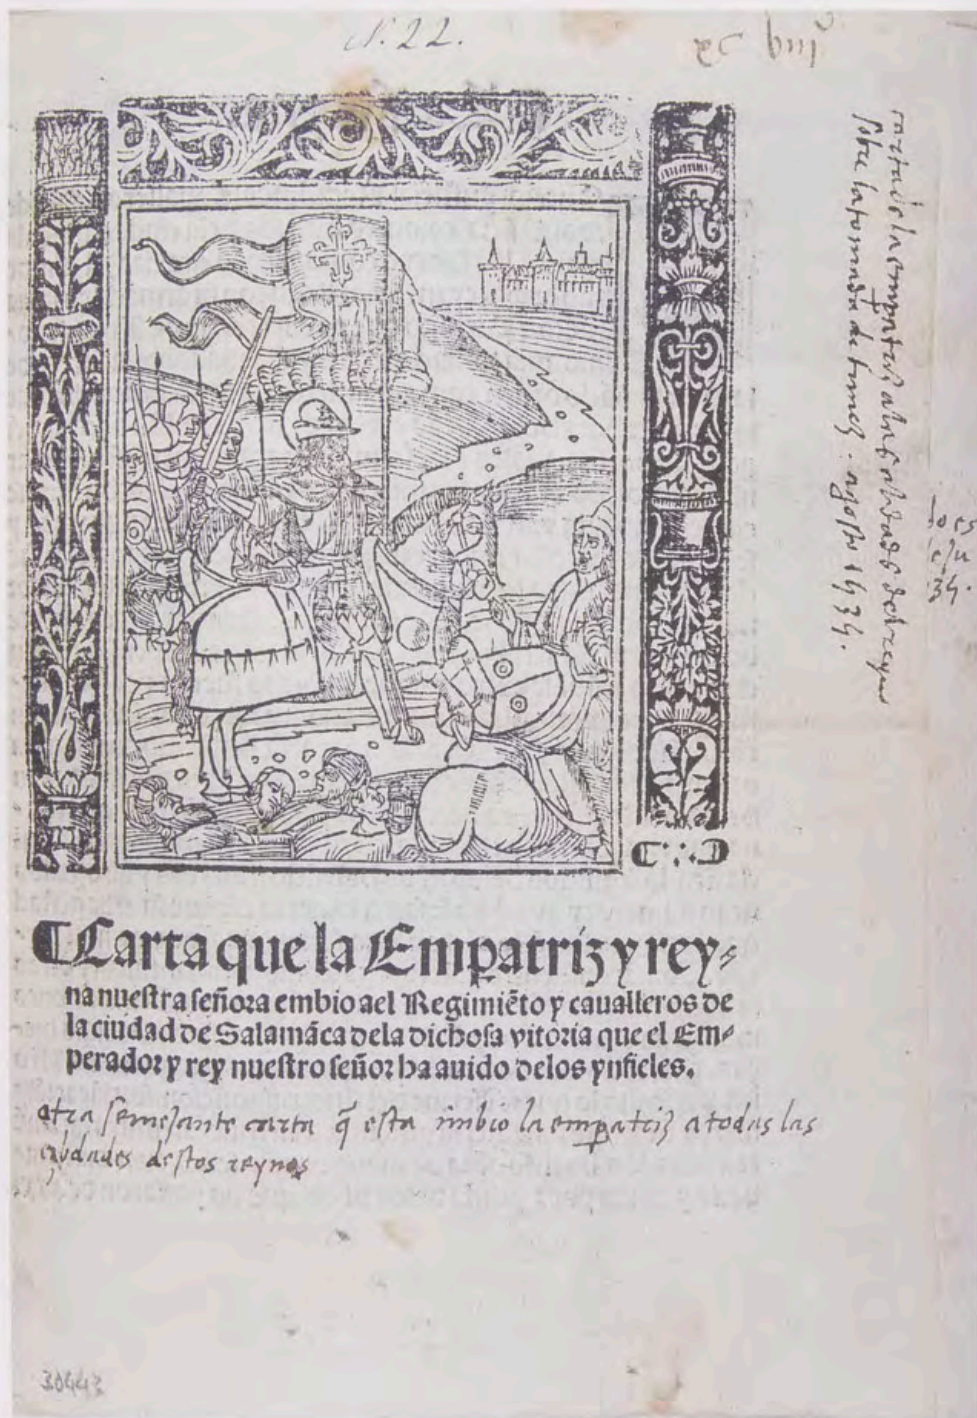 N. 22.
carta de la empatriz a las cibdades del reyno
sobre la tomada de tunez. agosto 1535.
35.
Carta que la Emꝑatriz y rey-
na nuestra señora embio ael Regimiẽto y caualleros de
la ciudad de Salamãca dela dichosa vitoria que el Em-
perador y rey nuestro señor ha auido delos ynfieles.
otra semejante carta q̃ esta imbio la empatriz a todas las
cibdades destos reynos
30443